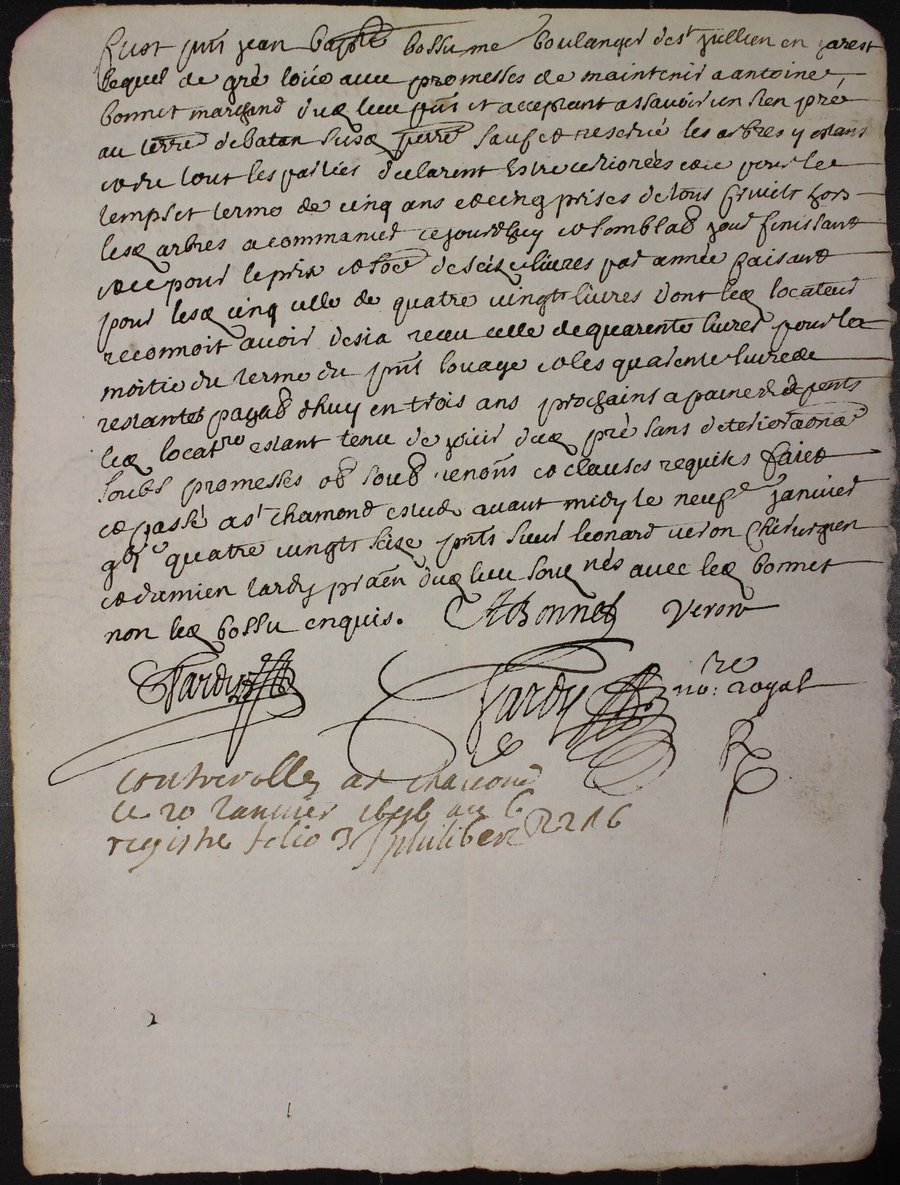 fust pnt jean bapte bossu me boulanger de st jullien en jarest
lequel de gré loüe avec promesses de maintenir a antoine
bonnet marchand dud lieu pnt et acceptant assavoir un sien pré
au terre de sud sauf et reservé les arbres y estans
tout les parties declarent estre et ce pour le
temps et terme de cinq ans et cinq prises de tous fruits hors
lesd arbres a commancer ce jourdhuy et semblab jour finissant
et ce pour le prix et soe de seize livres par année faisant
pour lesd cinq celle de quatre vingts livres dont led locateur
reconnoit avoir desia receu celle de quarente livres pour la
moitie du terme du pnt louage et les quarente livres
restantes payab dhuy en trois ans prochains a paine de depents
led locatre estant tenu de jouir dud pré sans deterioraon
soubs promesses ob soub renons et clauses requises fait
et passé a st chamond estude avant midy le neufe janvier
gbic quatre vingts seize pnts sieur leonard veron chirurgien
et damien tardy praen dud lieu sousnés avec led bonnet
non led bossu enquis. ABonnet veron
Tardy Tardy nore royal
controlle a st chamond
ce 20 janvier 1696 au 6
registre folio 3 philibert R 2 s 6